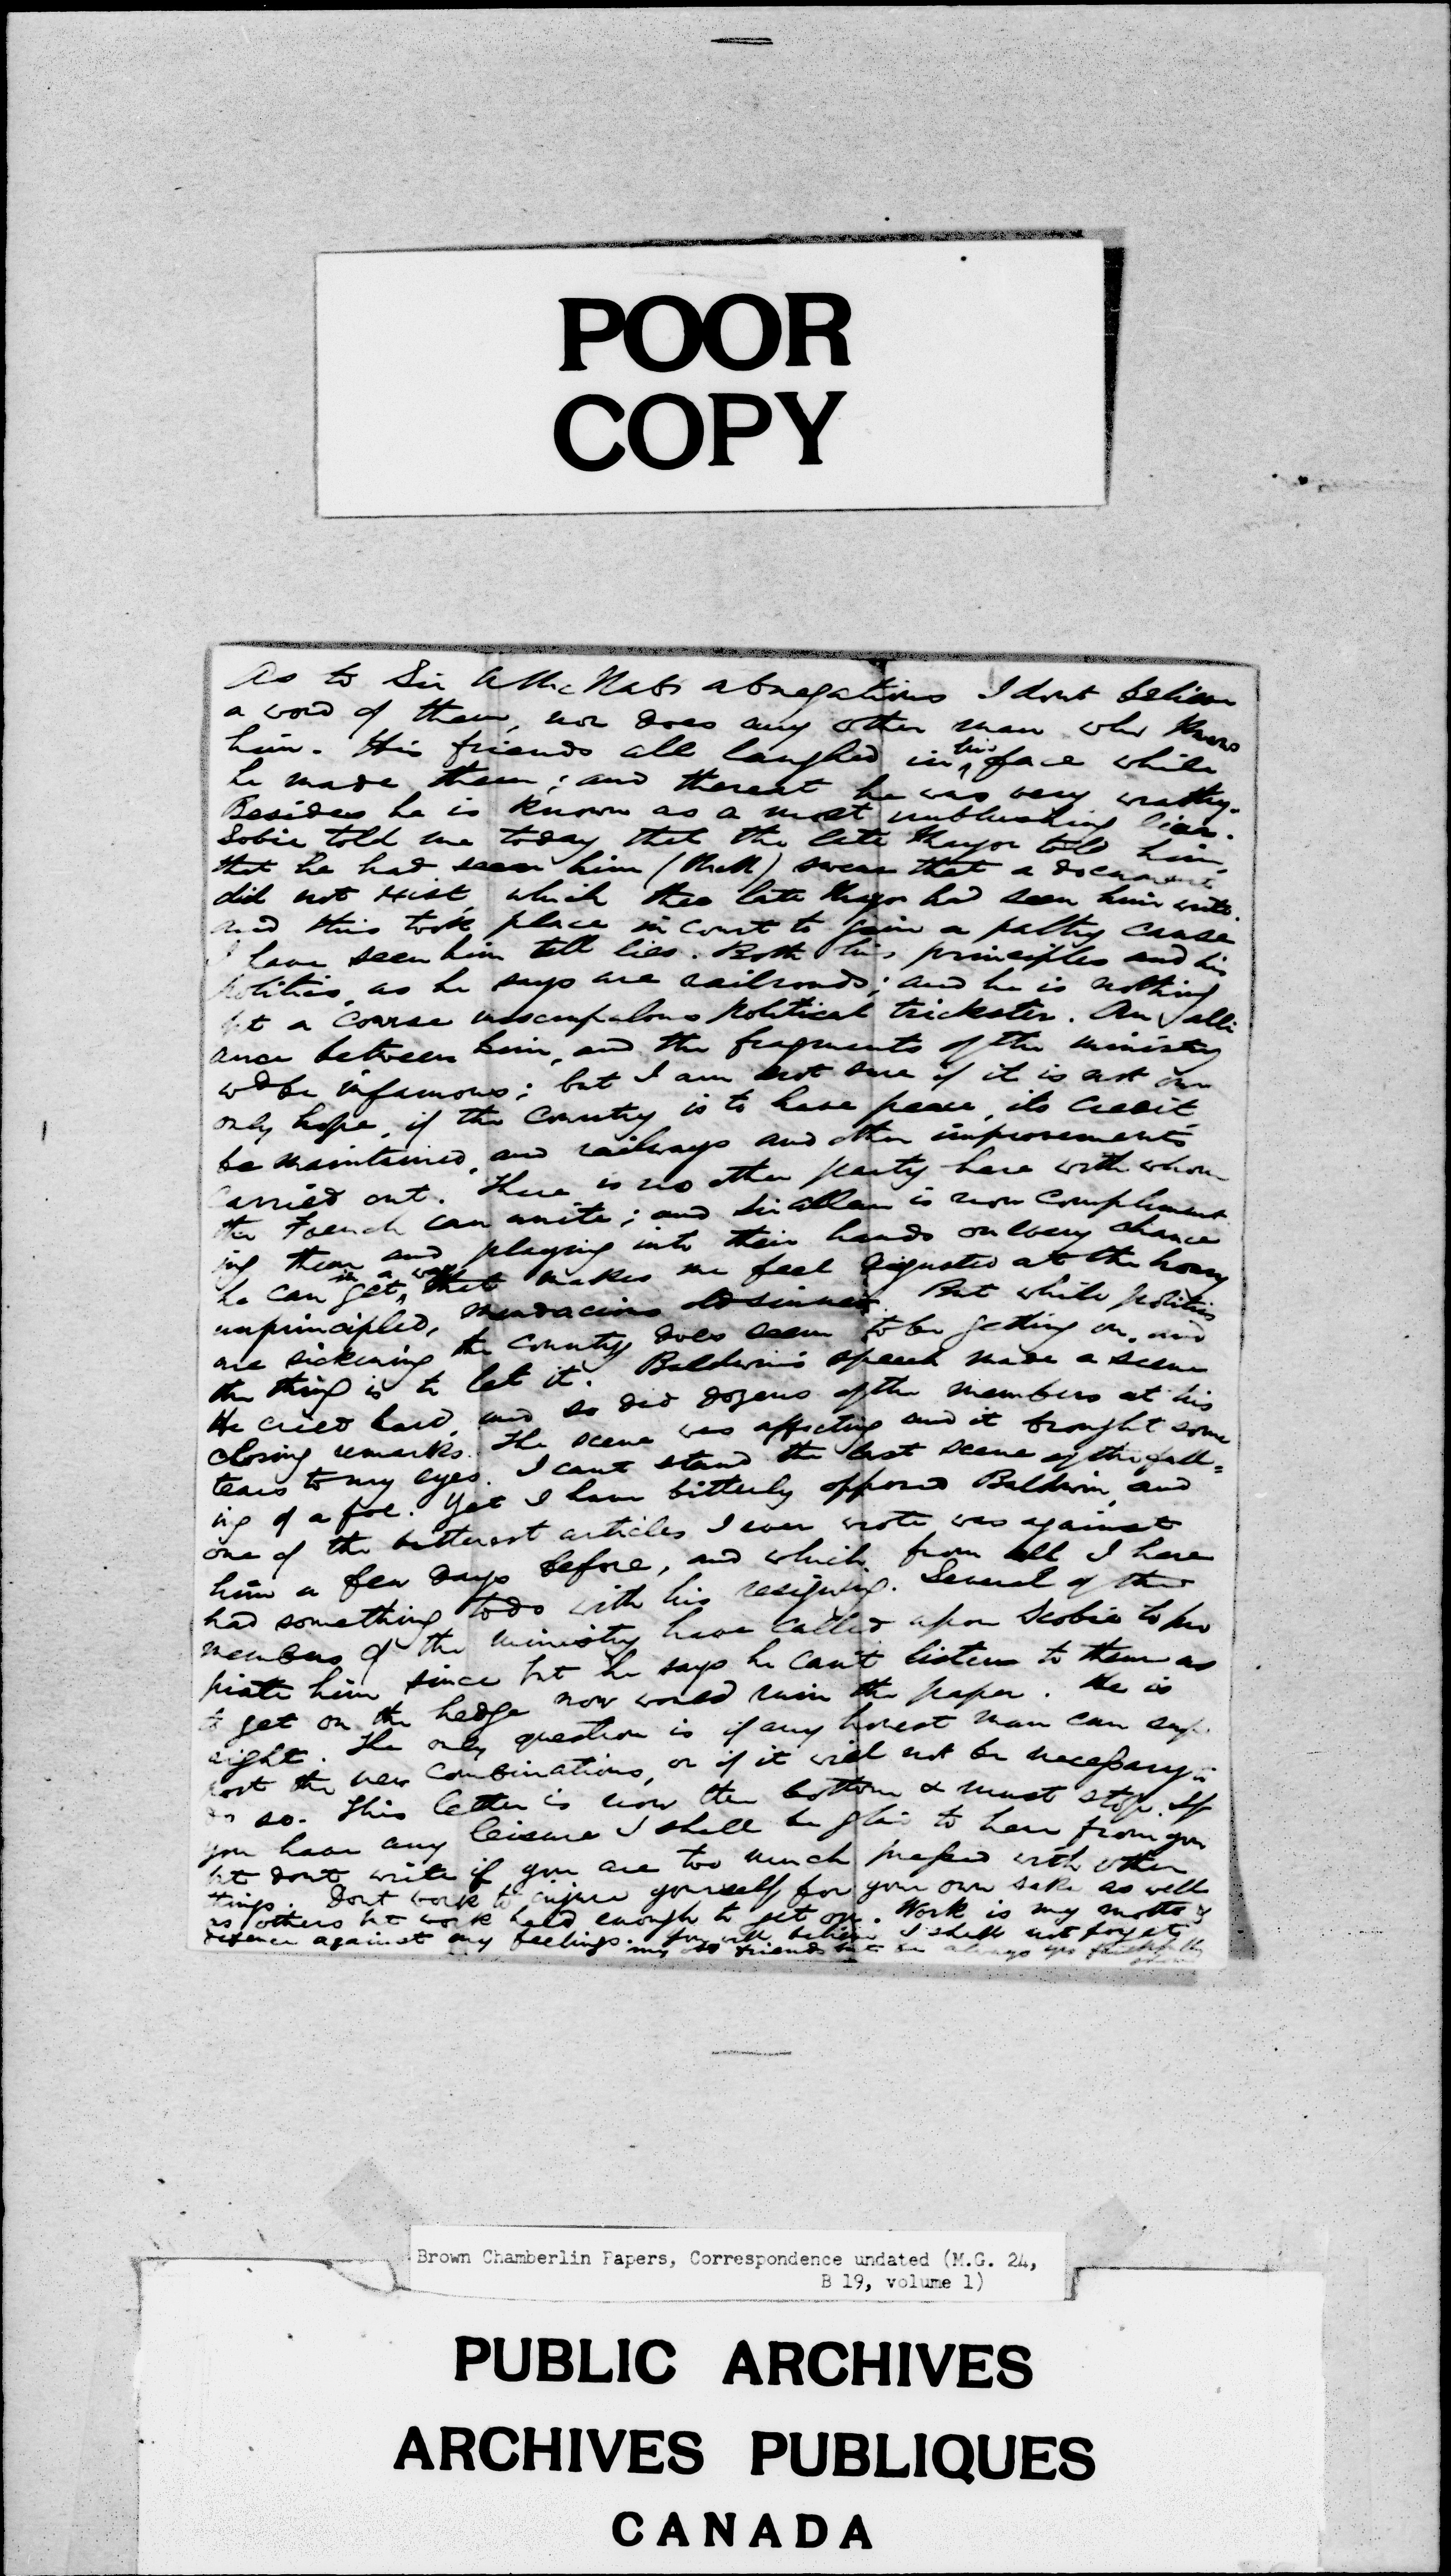 POOR
COPY
As to Sir A McNabs abnegations I dont believe
a word of them, nor does any other man who knows
him. His friends all laughed in his face while
he made them; and thereat he was very wrathy.
Besides he is known as a most unblushing liar.
Sobie told me today that the late Mayor told him
that he had seen him (McN) swear that a document
did not exist which the late Mayor had seen him write.
and this took place in court to gain a paltry cause
I have seen him tell lies. Both his principles and his
politics, as he says are railroads; and he is nothing
but a coarse unscrupulous political trickster. An alli
ance between him, and the fragments of the ministry
wd be infamous; but I am not sure if it is not our
only hope, if the country is to have peace, its credit
be maintained, and railways and other improvements
carried out. There is no other party here with whom
the French can unite; and Sir Allan is now compliment
ing them and playing into their hands on every chance
he can get, in a way that makes me feel disgusted at the hoary
unprincipled, mendacious old sinner. But while politics
are sickening the country does seem to be getting on, and
the thing is to let it. Baldwin's speech made a scene
He cried hard, and so did dozens of the members at his
closing remarks. The scene was affecting and it brought some
tears to my eyes. I cant stand the last scene of the fall=
ing of a foe. Yet I have bitterly opposed Baldwin, and
one of the bitterest articles I ever wrote was against
him a few days before, and which from all I hear
had something to do with his resigning. Several of the
members of the ministry have called upon Scobie to pro
piate him since but he says he can't listen to them as
to get on the hedge now would ruin the paper. He is
right. The only question is if any honest man can sup
port the new combinations, or if it will not be necessary to
do so. This letter is now the bottom & must stop. If
you have any leisure I shall be glad to hear from you
but dont write if you are too much pressed with other
things. Dont work to injure yourself for your own sake as well
as others but work hard enough to get on. Work is my motto &
defence against my feelings. You will believe I shall not forget
my old friends but be always yrs faithfully
Brown Chamberlin Papers, Correspondence undated (M.G. 24,
B 19, volume 1)
PUBLIC ARCHIVES
ARCHIVES PUBLIQUES
CANADA